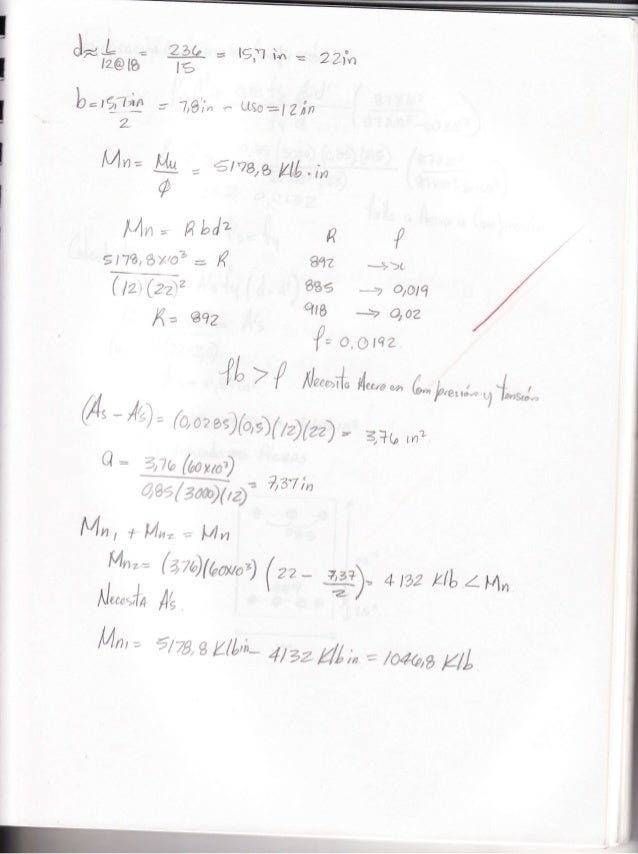 d≈ L/12@18 = 236/15 = 15,7 in = 22in
b = 15,7in/2 = 7,8in ~ uso = 12 in
Mn = Mu/φ = 5178,8 Klb·in
Mn = Rbd²
R ρ
5178,8x10³/(12)(22)² = R
892 → x
885 → 0,019
R = 892
918 → 0,02
ρ = 0,0192.
ρb > ρ Necesita Acero en Compresión y Tensión
(As - A's) = (0,0285)(0,5)(12)(22) = 3,76 in²
a = 3,76 (60x10³)/0,85(3000)(12) = 7,37in
Mn1 + Mn2 = Mn
Mn2 = (3,76)(60x10³) (22 - 7,37/2) = 4132 Klb < Mn
Necesita A's.
Mn1 = 5178,8 Klbin - 4132 Klbin = 1046,8 Klb